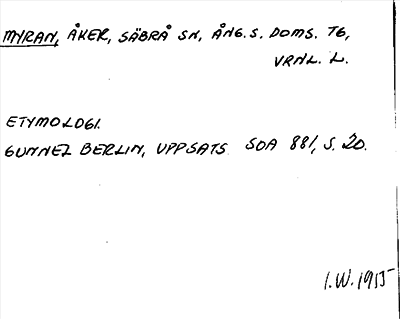 MYRAN, ÅKER, SÄBRÅ SN, ÅNG. S. DOMS. T6,
VRNL. L.
ETYMOLOGI.
GUNNEL BERLIN, UPPSATS SOA 881, S. 20.
I.W. 1915